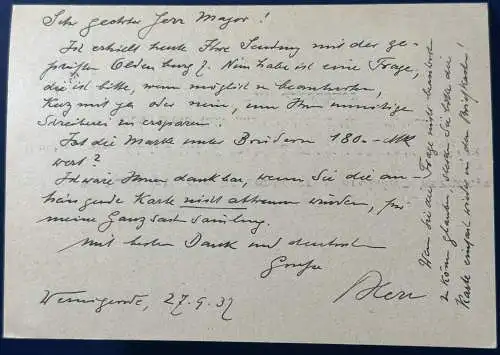 Sehr geehrter Herr Major!
Ich erhielt heute Ihre Sendung mit der ge-
prüften Oldenburg 7. Nun habe ich eine Frage,
die ich bitte, wenn möglich zu beantworten,
Kurz mit ja oder nein, um Ihnen unnötige
Schreiberei zu ersparen.
Ist die Marke unter Brüdern 180.- Mk
wert?
Ich wäre Ihnen dankbar, wenn Sie die an-
hängende Karte nicht abtrennen würden, für
meine Ganzsachsamlung.
Mit besten Dank und
Grüße
Wernigerode, 27.9.37
Wenn Sie die Frage nicht beantworten
zu können glauben, stecken Sie bitte die
Karte einfach wieder in den Briefkasten!